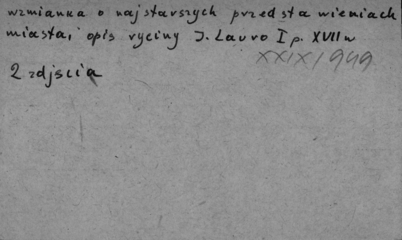 wzmianka o najstarszych przedstawieniach
miasta, opis ryciny J. Lauro I p. XVII w
XXIX/949
2 zdjścia